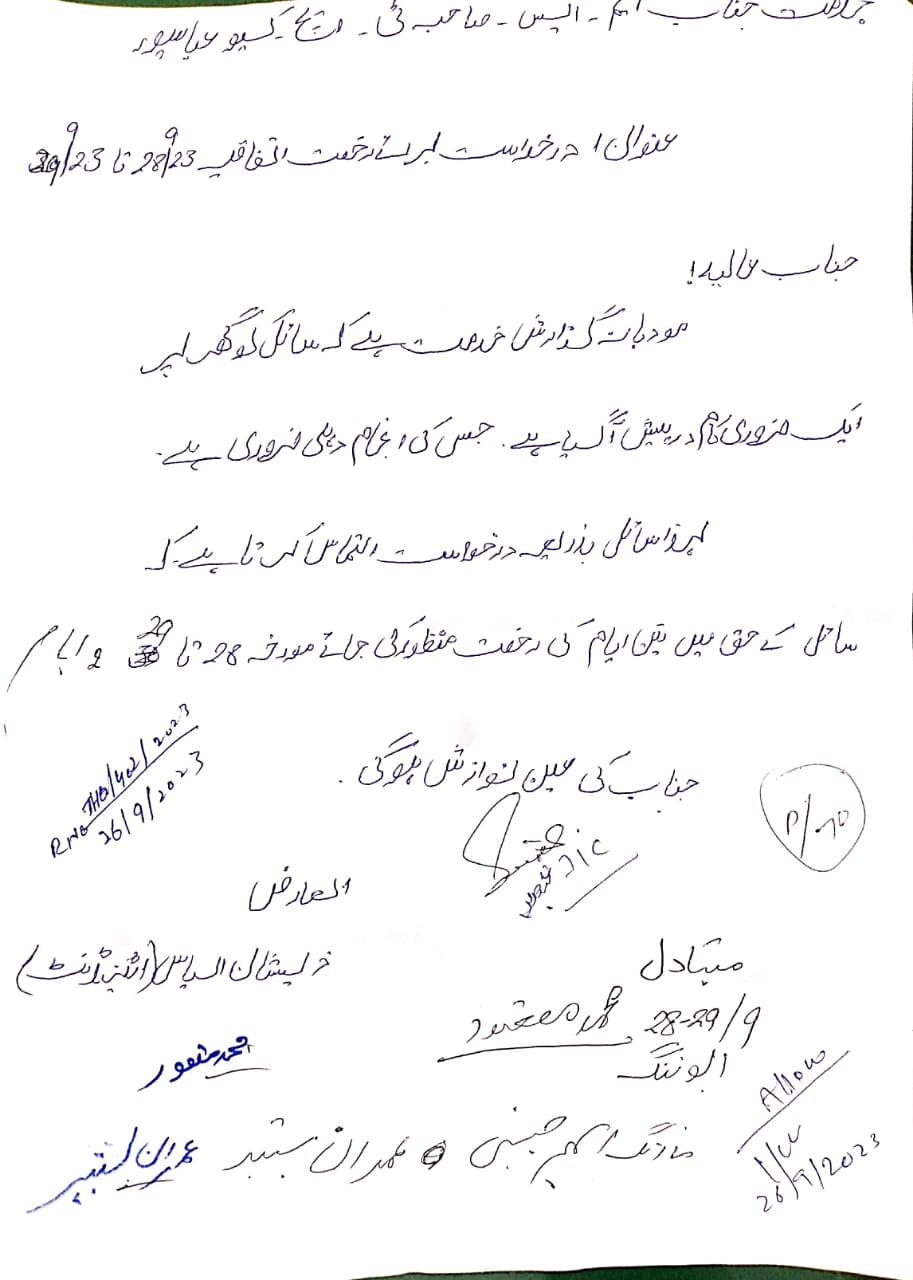 جناب ایم۔ ایس۔ صاحبہ ٹی۔ ایچ۔ کیو عباسپور
عنوان: درخواست برائے رخصت اتفاقیہ 28/9/23 تا 29/9/23
جناب عالیہ!
مودبانہ گذارش خدمت ہے کہ سائل کو گھر پر
ایک ضروری کام درپیش آ گیا ہے۔ جس کی انجام دہی ضروری ہے۔
لہذا سائل بذریعہ درخواست التماس کرتا ہے کہ
سائل کے حق میں تین ایام کی رخصت منظور کی جائے مورخہ 28 تا 29 2 ایام
جناب کی عین نوازش ہوگی۔
THQ/402/2023
26/9/2023
P/
I/C
العارض
ذیشان الیاس (اٹینڈنٹ)
متبادل
28-29/9 محمد مقصود
ایوننگ
محمد مقصود
مارننگ عمران بشیر
عمران بشیر
Allow
26/9/2023